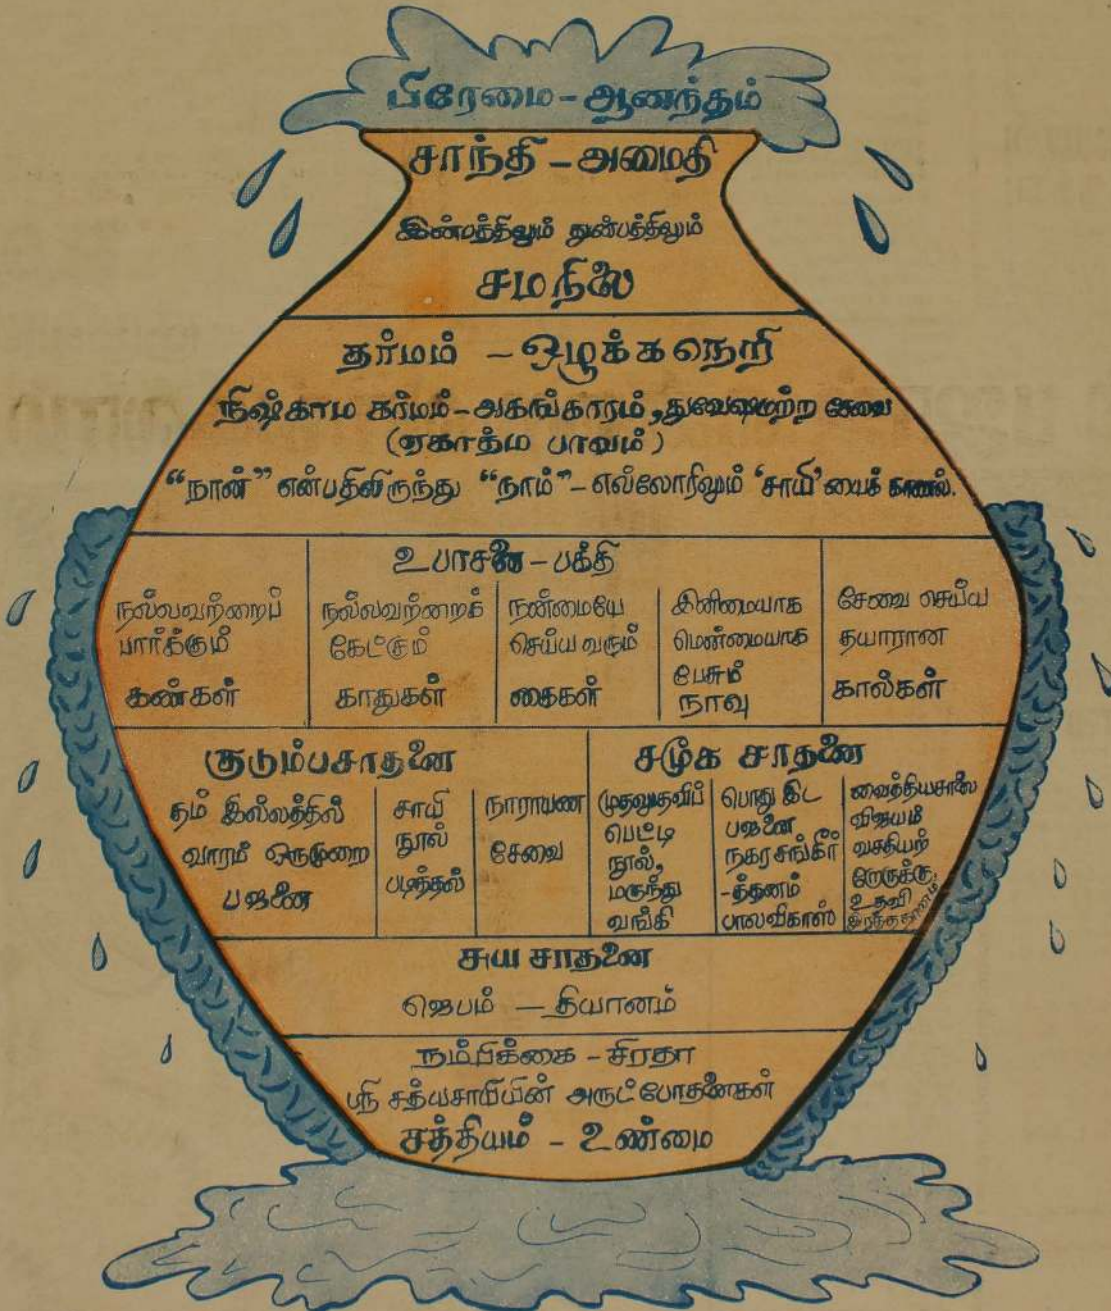 பிரேமை - ஆனந்தம்
சாந்தி - அமைதி
இன்பத்திலும் துன்பத்திலும்
சமநிலை
தர்மம் - ஒழுக்கநெறி
நிஷ்காம கர்மம் - அகங்காரம், துவேஷமற்ற சேவை
(ஏகாத்ம பாவம்)
"நான்" என்பதிலிருந்து "நாம்" - எல்லோரிலும் 'சாயி'யைக் காணல்.
உபாசனை - பக்தி
நல்லவற்றைப்
பார்க்கும்
கண்கள்
நல்லவற்றைக்
கேட்கும்
காதுகள்
நன்மையே
செய்ய வரும்
கைகள்
இனிமையாக
மென்மையாக
பேசும்
நாவு
சேவை செய்ய
தயாரான
கால்கள்
குடும்பசாதனை
தம் இல்லத்தில்
வாரம் ஒருமுறை
பஜனை
சாயி
நூல்
படித்தல்
நாராயண
சேவை
சமூக சாதனை
முதலுதவிப்
பெட்டி
நூல்,
மருந்து
வங்கி
பொது இட
பஜனை
நகரசங்கீர்
-த்தனம்
பாலவிகாஸ்
வைத்தியசாலை
விஜயம்
வசதியற்
றோருக்கு
உதவி
இரத்ததானம்
சுய சாதனை
ஜெபம் — தியானம்
நம்பிக்கை - சிரதா
ஸ்ரீ சத்யசாயியின் அருட்போதனைகள்
சத்தியம் - உண்மை